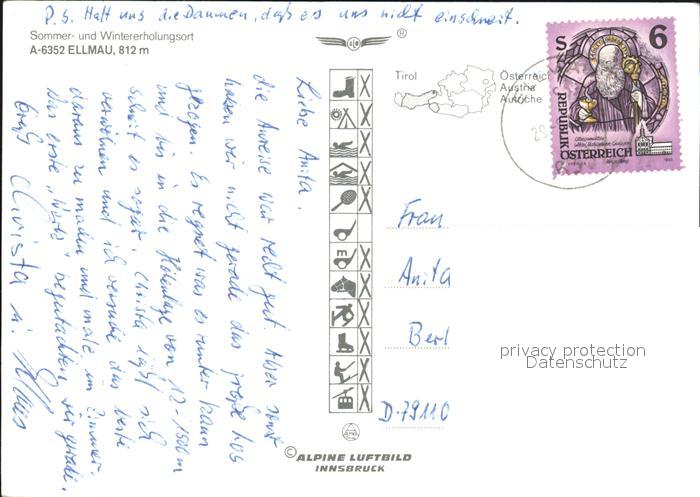 P.S. Haltet uns die Daumen, daß es uns nicht einschneit.
Sommer- und Wintererholungsort
A-6352 ELLMAU, 812 m
®
Tirol
Österreich
Austria
Autriche
S 6
REPUBLIK
ÖSTERREICH
Liebe Anita.
die Anreise war recht gut. Aber sonst
haben wir nicht gerade das große Los
gezogen. Es regnet was es runter kann
und bis in die Höhenlage von 12-1500 m
schneit es sogar. Christa läßt sich
verwöhnen und ich versuche das beste
daraus zu machen und male im Zimmer.
Das erste "Werk" begutachten wir gerade.
Gruß Christa u.
Frau
Anita
Berl
D-79110
privacy protection
Datenschutz
© ALPINE LUFTBILD
INNSBRUCK